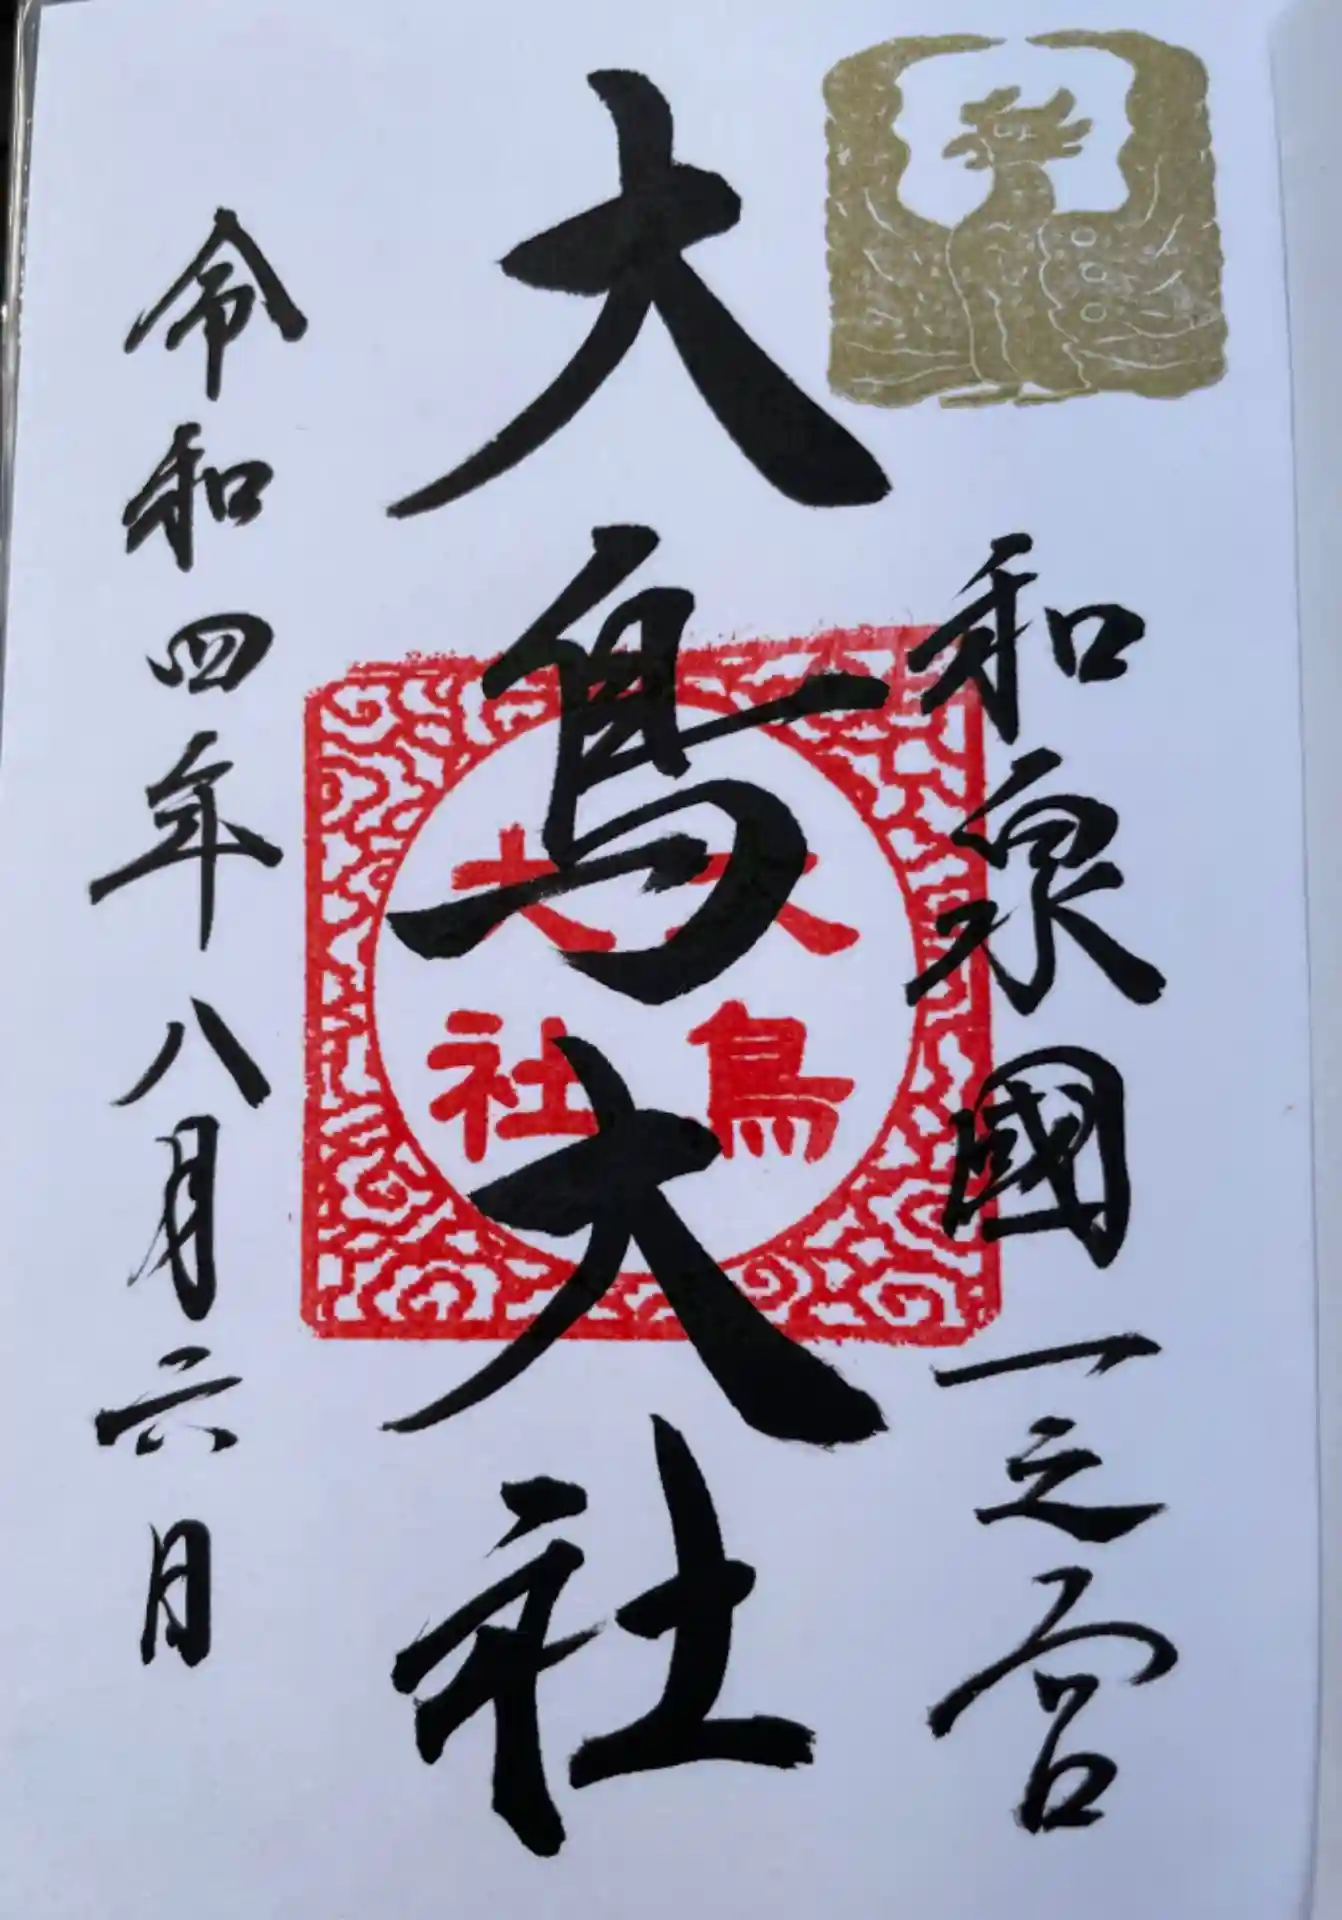 和泉國一之宮
大鳥大社
大鳥
大社
令和四年八月六日